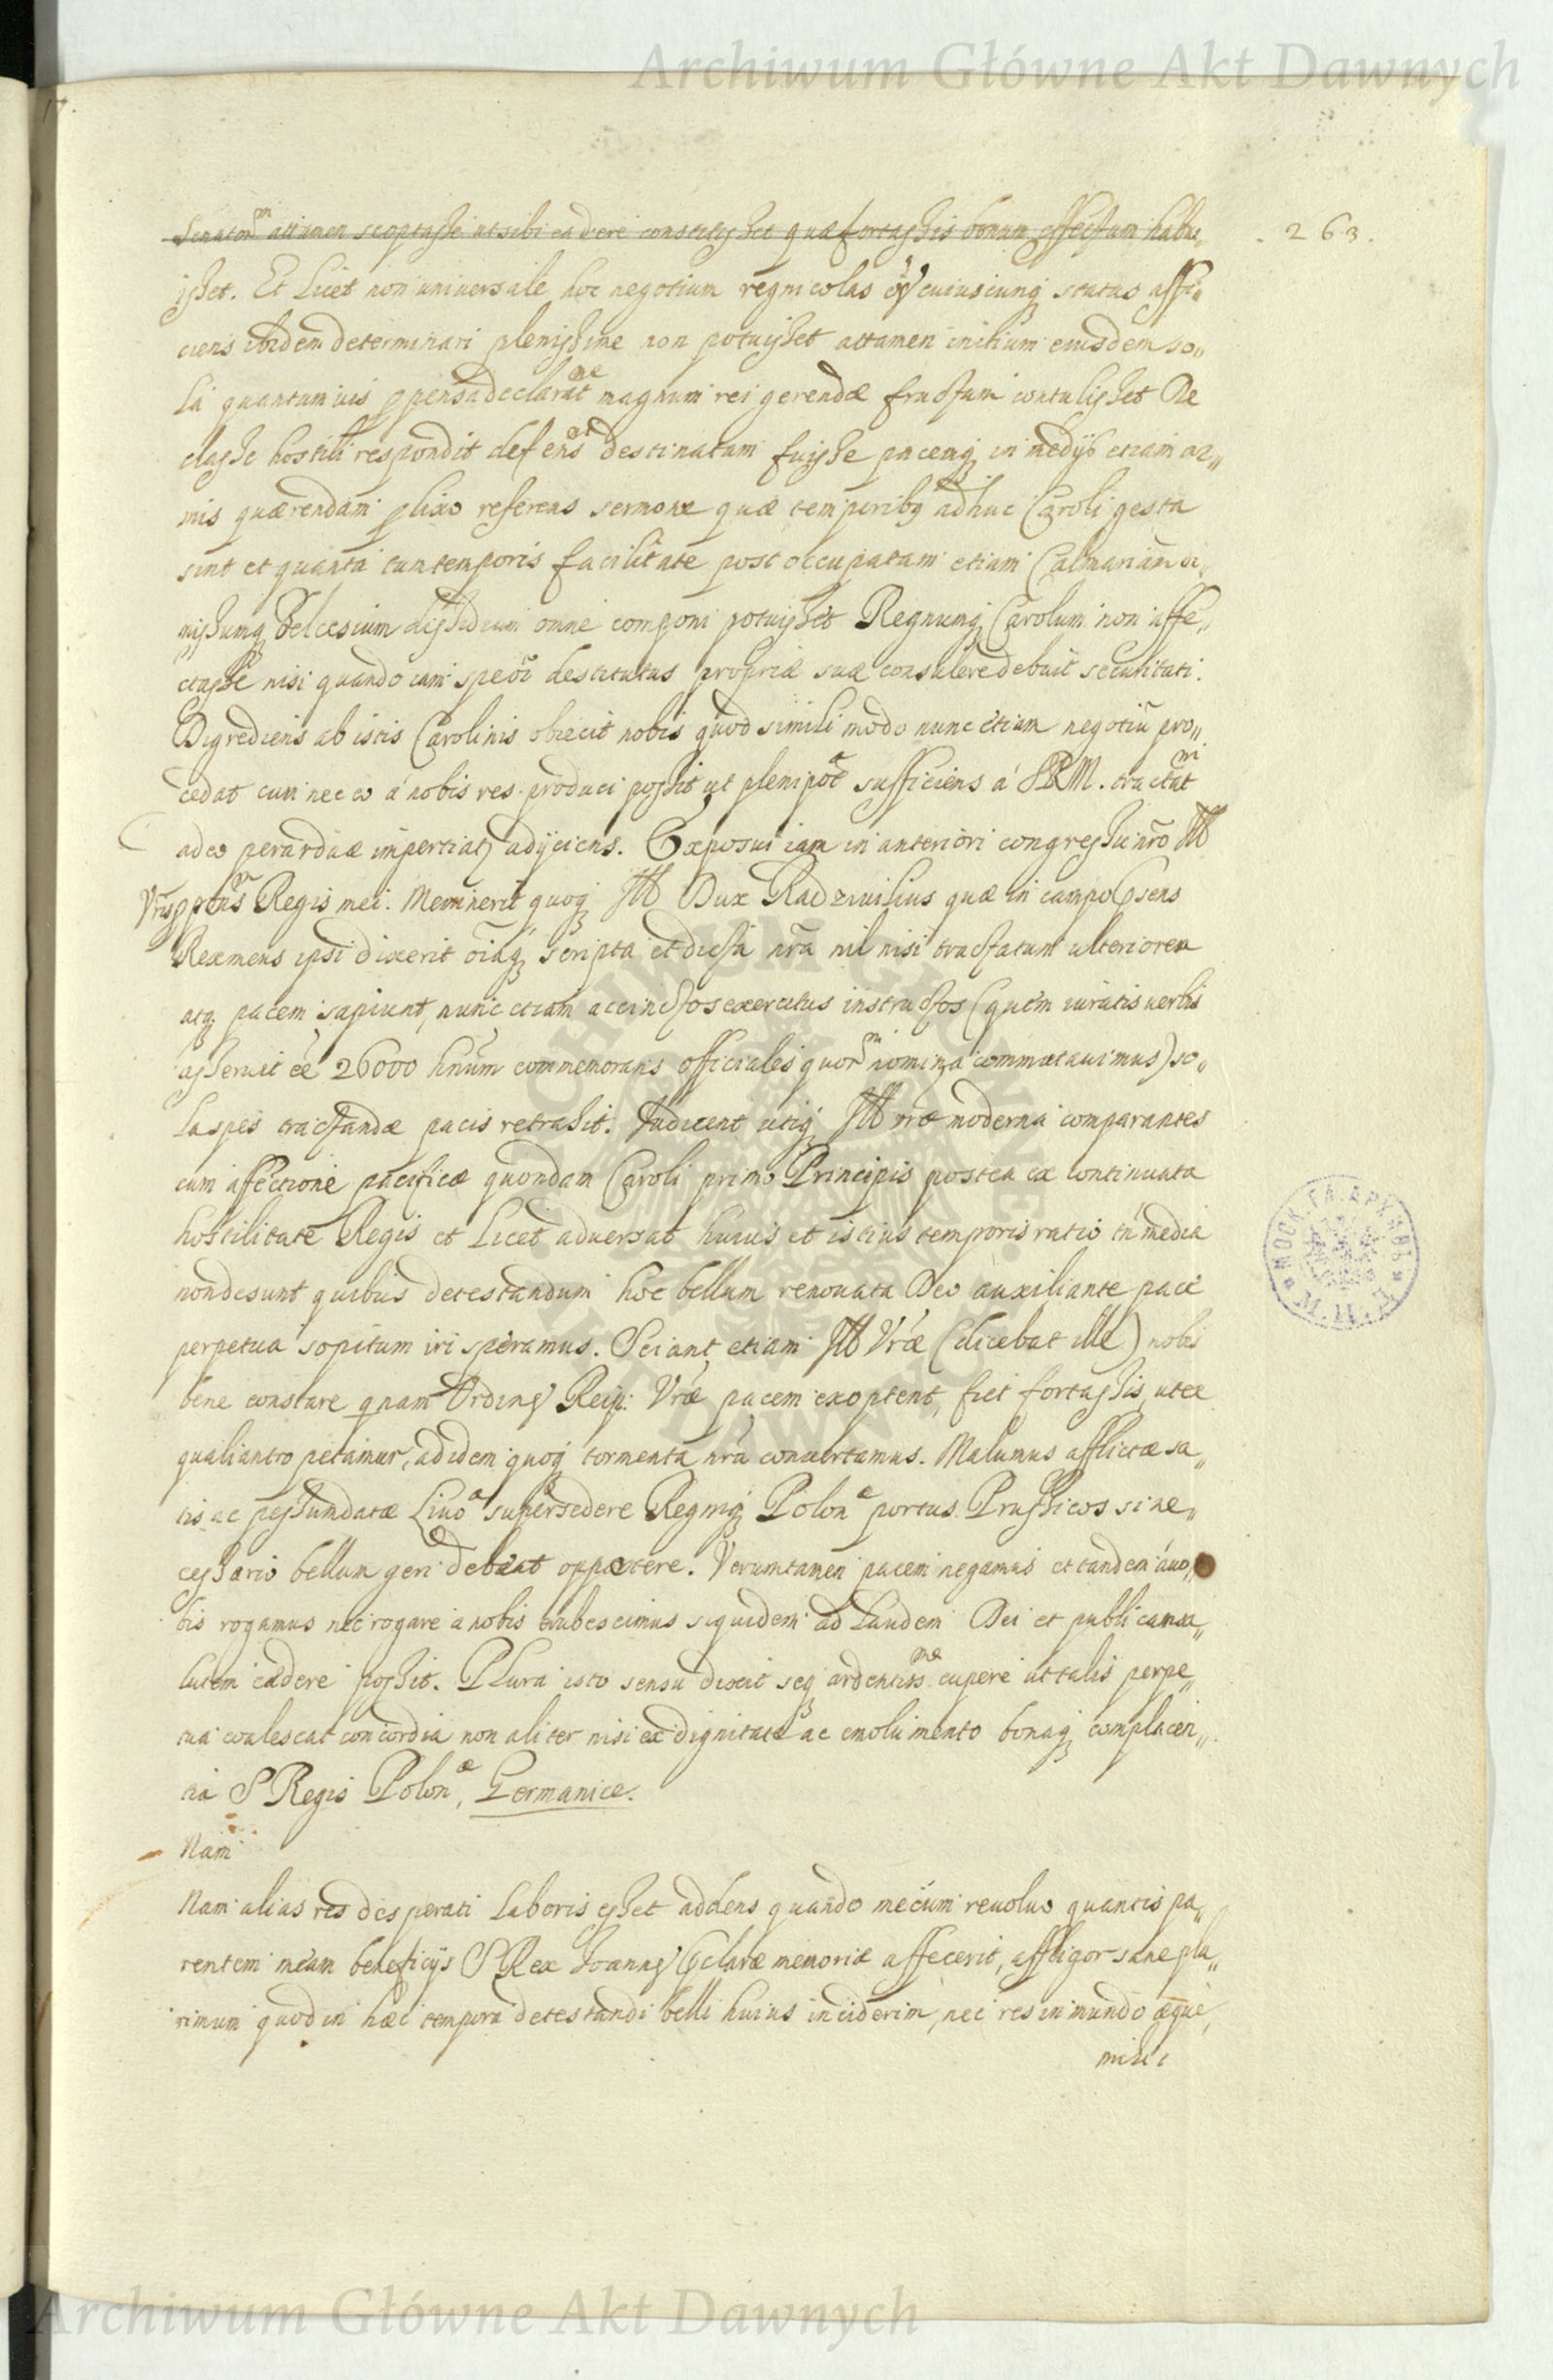 Archiwum Główne Akt Dawnych
17.
. 263.
Senator^m attamen se optasse ut sibi eadere constitisset quæ fortassis bonum effectum habu„
isset. Et Licet non universale hoc negotium regnicolas cuiuscunq status affi„
ciens ibidem determinari plenissime non potuisset attamen initium eiusdem so„
la quantumvis ppensa declarat^ne magnum rei gerendæ fructum contulisset De
classe hostili respondit defens^at destinatam fuisse pacemq in medijs etiam ar„
mis quærendam plixo referens sermone quæ temporibq adhuc Caroli gesta
sint et quanta tuntemporis facilitate post occupatam etiam Calmariam di„
missumq dissidium omne componi potuisset Regnumq Carolum non affe„
ctasse nisi quando iam spe destitutus propriæ suæ consulere debuit securitati.
Digrediens ab istis Carolinis obiecit nobis quod simili modo nunc etiam negotiū pro„
cedat cum nec eo á nobis res produci possit ut plenipot^a sufficiens á SRM. tractat^m
adeo perarduæ impertiat adijciens. Exposui iam in anteriori congressu nrō Ill
Vris Regis mei. Meminerit quoq Ill Dux Radzivilius quæ in campo
Rex mens ipsi dixerit oīaq scripta et dicta nrā nil nisi tractatum ulteriorem
atq pacem sapiunt, nunc etiam accinctos exercitus instructos (quem iuratis verbis
asseruit eē 26000 hnūm commemorans officiales quor^m nomina commutavimus) so„
la spes tractandæ pacis retrahit. Iudicent utiq Ill vræ moderna comparantes
cum affectione pacificæ quondam Caroli primo Principis postea ex continuata
hostilitate Regis et Licet adversat huius et istius temporis ratio tn media
non desunt quibus detestandum hoc bellum renovata Deo auxiliante pace
perpetua sopitum iri speramus. Sciant etiam Ill Vræ (dicebat ille) nobis
bene constare quam Ordines Reip: Vræ pacem exoptent, fiet fortassis, ut ex
quali antro petamur, ad idem quoq tormenta nrā convertamus. Malumus afflictæ sa„
tis ac pessumdatæ Livo^æ supersedere Regniq Polon^æ portus Prussicos si ne„
cessario bellum geri debeat oppetere. Verumtamen pacem negamus et tandem á vo„
bis rogamus nec rogare a nobis erubescimus siquidem ad Laudem Dei et publicam sa„
lutem cædere possit. Plura isto sensu dixit seq ardentiss^me cupere ut talis perpe„
tua coalescat concordia non aliter nisi ex dignitate ac emolumento bonaq complacen„
tia S Regis Polon^æ, Germanice.
Nam
Nam alias res desperati Laboris esset addens quando mecum revolvo quantis pa„
rentem meam beneficijs S Rex Joannes claræ memoriæ affecerit, affligor sane plu„
rimum quod in hæc tempora detestandi belli huius inciderim, nec res in mundo æque,
mihi
Archiwum Główne Akt Dawnych